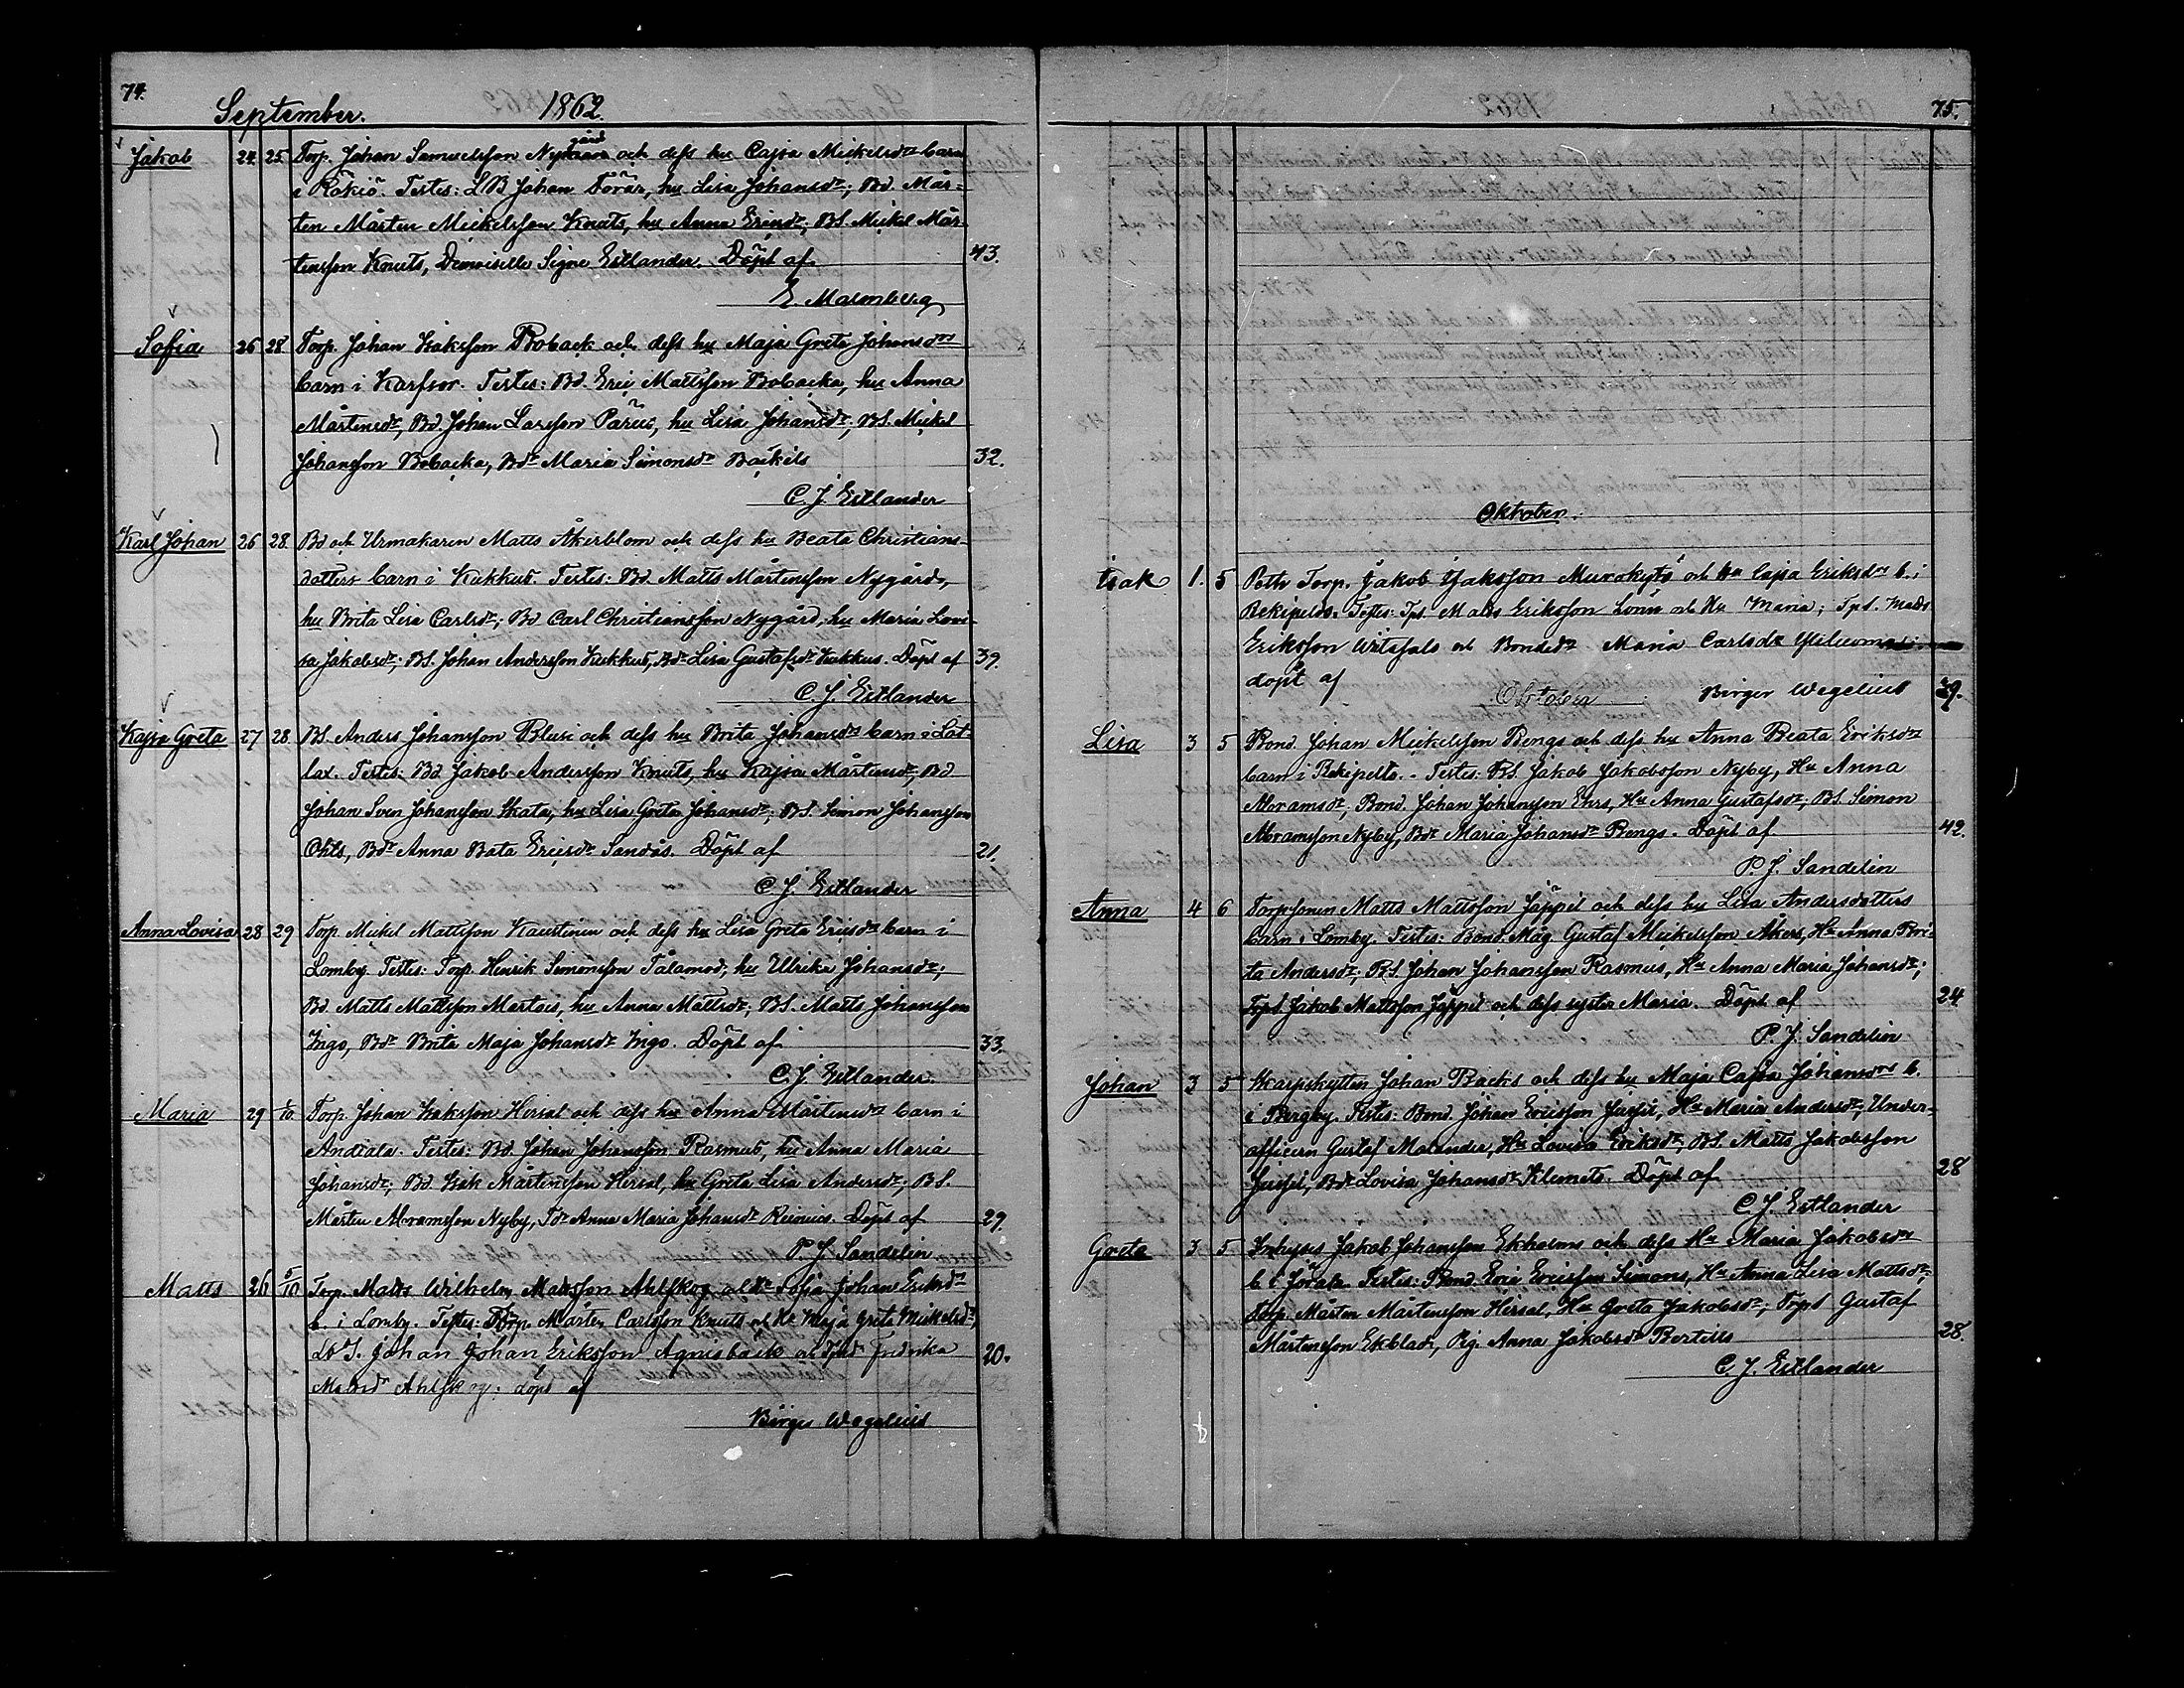 74.
September. 1862.
Jakob 24. 25. Torp. Johan Samuelsson Nygård och dess hu Cajsa Mickelsdr barn
i Rökiö. Testes: LB Johan Forär, hu Lisa Johansdr; Bd. Mår-
ten Mårten Mickelsson Knuts, hu Anna Ericsdr; BS. Mickel Mår-
tensson Knuts, Demoiselle Signe Estlander. Döpt af 43.
E. Malmberg
Sofia 26 28 Torp. Johan Isaksson Roback och dess hu Maja Greta Johansdrs
barn i Karfsor. Testes: Bd. Eric Mattsson Bobacka, hu Anna
Mårtensdr, Bd. Johan Larsson Pärus, hu Lisa Johansdr; BS. Mickel
Johansson Bobacka, Bdr Maria Simonsdr Backels 32.
C. J. Estlander
Karl Johan 26 28. Bd och Urmakaren Matts Åkerblom och dess hu Beata Christians-
dotters barn i Kukkus. Testes: Bd. Matts Mårtensson Nygård,
hu Brita Lisa Carlsdr; Bd Carl Christiansson Nygård, hu Maria Lovi-
sa Jakobsdr; BS. Johan Andersson Kukkus, Bdr Lisa Gustafsdr Kukkus. Döpt af 39.
C. J. Estlander
Kajsa Greta 27 28. BS. Anders Johansson Blusi och dess hu Brita Johansdrs barn i Lot-
lax. Testes: Bd Jakob Andersson Knuts, hu Kajsa Mårtensdr; Bd
Johan Sven Johansson Skata, hu Lisa Greta Johansdr; BS. Simon Johansson
Ohls, Bdr Anna Bata Ericsdr Sandås. Döpt af 21.
C. J. Estlander
Anna Lovisa 28 29 Torp. Mickel Mattsson Kaustinen och dess hu Lisa Greta Ericsdr barn i
Lomby. Testes: Torp. Henrik Simonsson Talamod, hu Ullrika Johansdr;
Bd. Matts Mattsson Martois, hu Anna Mattsdr; BS. Matts Johansson
Ingo, Bdr Brita Maja Johansdr Ingo. Döpt af 33.
C. J. Estlander.
Maria 29 1/10. Torp. Johan Isaksson Hirsal och dess hu Anna Mårtensdr barn i
Andiala. Testes: Bd. Johan Johansson Rasmus, hu Anna Maria
Johansdr; Bd. Isak Mårtensson Hirsal, hu Greta Lisa Andersdr; BS.
Mårten Abramsson Nyby, Tdr Anna Maria Johansdr Reinius. Döpt af 29.
P. J. Sandelin
Matts 26 5/10 Torp. Matts Wilhelm Mattsson Ahlskog o hu Sofia Johans Eriksdr
b. i Lomby. Testes: Torp. Mårten Carlsson Knuts och Hu Maja Greta Mickelsdr,
LBS. Johan Johan Eriksson Agnisbäck Fredrika 20.
Mattsdr Ahlskog; döpt af
Birger Wegelius
1862
75.
Oktober.
Isak 1. 5 Torp. Jakob Isaksson Murakytö och Hu Cajsa Eriksdrs b. i
Rekipeldo. Testes: Tps. Matts Eriksson Lönn och Hu Maria; Tps. Matts
Eriksson Witsals och Bondedr Maria Carlsdr
döpt af Oktober Birger Wegelius 39.
Lisa 3 5 Bond. Johan Mickelsson Bengs och dess hu Anna Beata Eriksdrs
barn i Rekipelto. Testes: BS. Jakob Jakobsson Nyby, Hu Anna
Abramsdr; Bond. Johan Johansson Ehrs, Hu Anna Gustafsdr; BS. Simon
Abramsson Nyby, Bdr Maria Johansdr Bengs. Döpt af 42.
P. J. Sandelin
Anna 4 6 Torpsonen Matts Mattsson Jäppil och dess hu Lisa Andersdotters
barn i Lomby. Testes: Bond. Måg Gustaf Mickelsson Åkers, Hu Anna Bri-
ta Andersdr; BS. Johan Johansson Rasmus, Hu Anna Maria Johansdr;
TorpS Jakob Mattsson Jäppil och dess syster Maria. Döpt af 24
P. J. Sandelin
Johan 3 5 Skarpskytten Johan Backs och dess hu Maja Cajsa Johansdrs b.
i Bergby. Testes: Bond. Johan Ericsson Jussil, Hu Maria Andersdr; Under-
officern Gustaf Malander, Hu Lovisa Eriksdr, BS. Matts Jakobsson
Jussil, Bdr Lovisa Johansdr Klemets. Döpt af 28
C. J. Estlander
Greta 3 5 Inhyses Jakob Johansson Ekholms och dess Hu Maria Jakobsdrs
b. i Jörala. Testes: Bond. Eric Ericsson Simons, Hu Anna Lisa Mattsdr;
Torp. Mårten Mårtensson Hirsal, Hu Greta Jakobsdr; TorpS Gustaf
Mårtensson Ekblad, Pig. Anna Jakobsdr Bertills 28.
C. J. Estlander